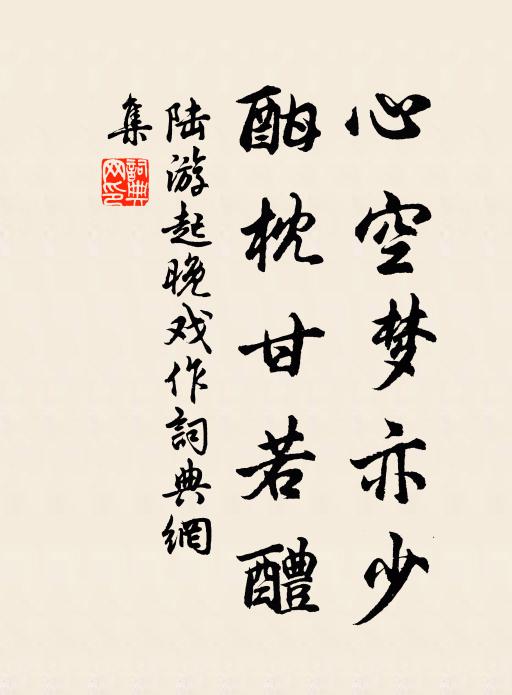 心空梦亦少
酣枕甘若醴
陆游起晚戏作詞典網
集
詞典
网印